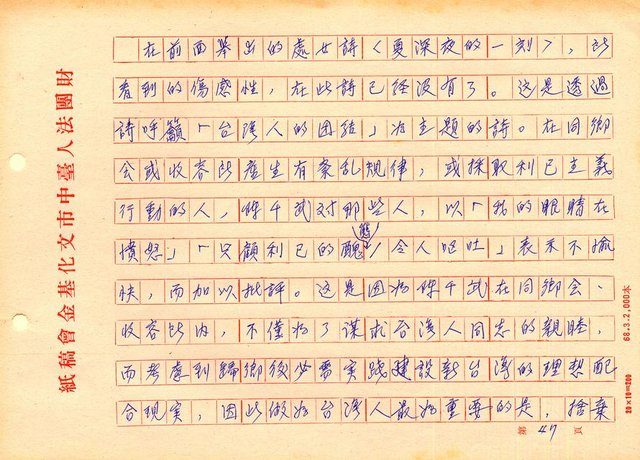 在前面舉出的處女詩〈夏深夜的一刻〉，所
看到的傷感性，在此詩已経沒有了。这是透過
詩呼籲「台湾人的団結」为主題的詩。在同鄉
会或收容所產生有紊乱規律，或採取利己主義
行動的人，陳千武对那些人，以「我的眼睛在
憤怒」「只顧利己的醜態令人嘔吐」表示不愉
快，而加以批評。这是因为陳千武在同鄉会、
收容所内，不僅为了謀求台湾人同志的親睦，
而考慮到歸鄉後必需実践建設新台湾的理想配
合現実，因此做为台湾人最为重要的是，捨棄
第 47 頁
財團法人臺中市文化基金會稿紙
68.3.2,000本
20×10=200